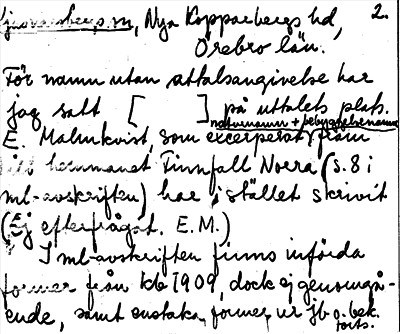 Ljusnarsbergs sn, Nya Kopparbergs hd, 2.
Örebro län.
För namn utan uttalsangivelse har
jag satt [ ] på uttalets plats.
naturnamn + bebyggelsenamn
E. Malmkvist, som excerperat från
till hemmanet Finnfall Norra (s. 8 i
ml-avskriften) har i stället skrivit
(Ej efterfrågat. E.M.)
I ml-avskriften finns införda
former från kb 1909, dock ej genomgå-
ende, samt enstaka former ur jb o. bek.
forts.